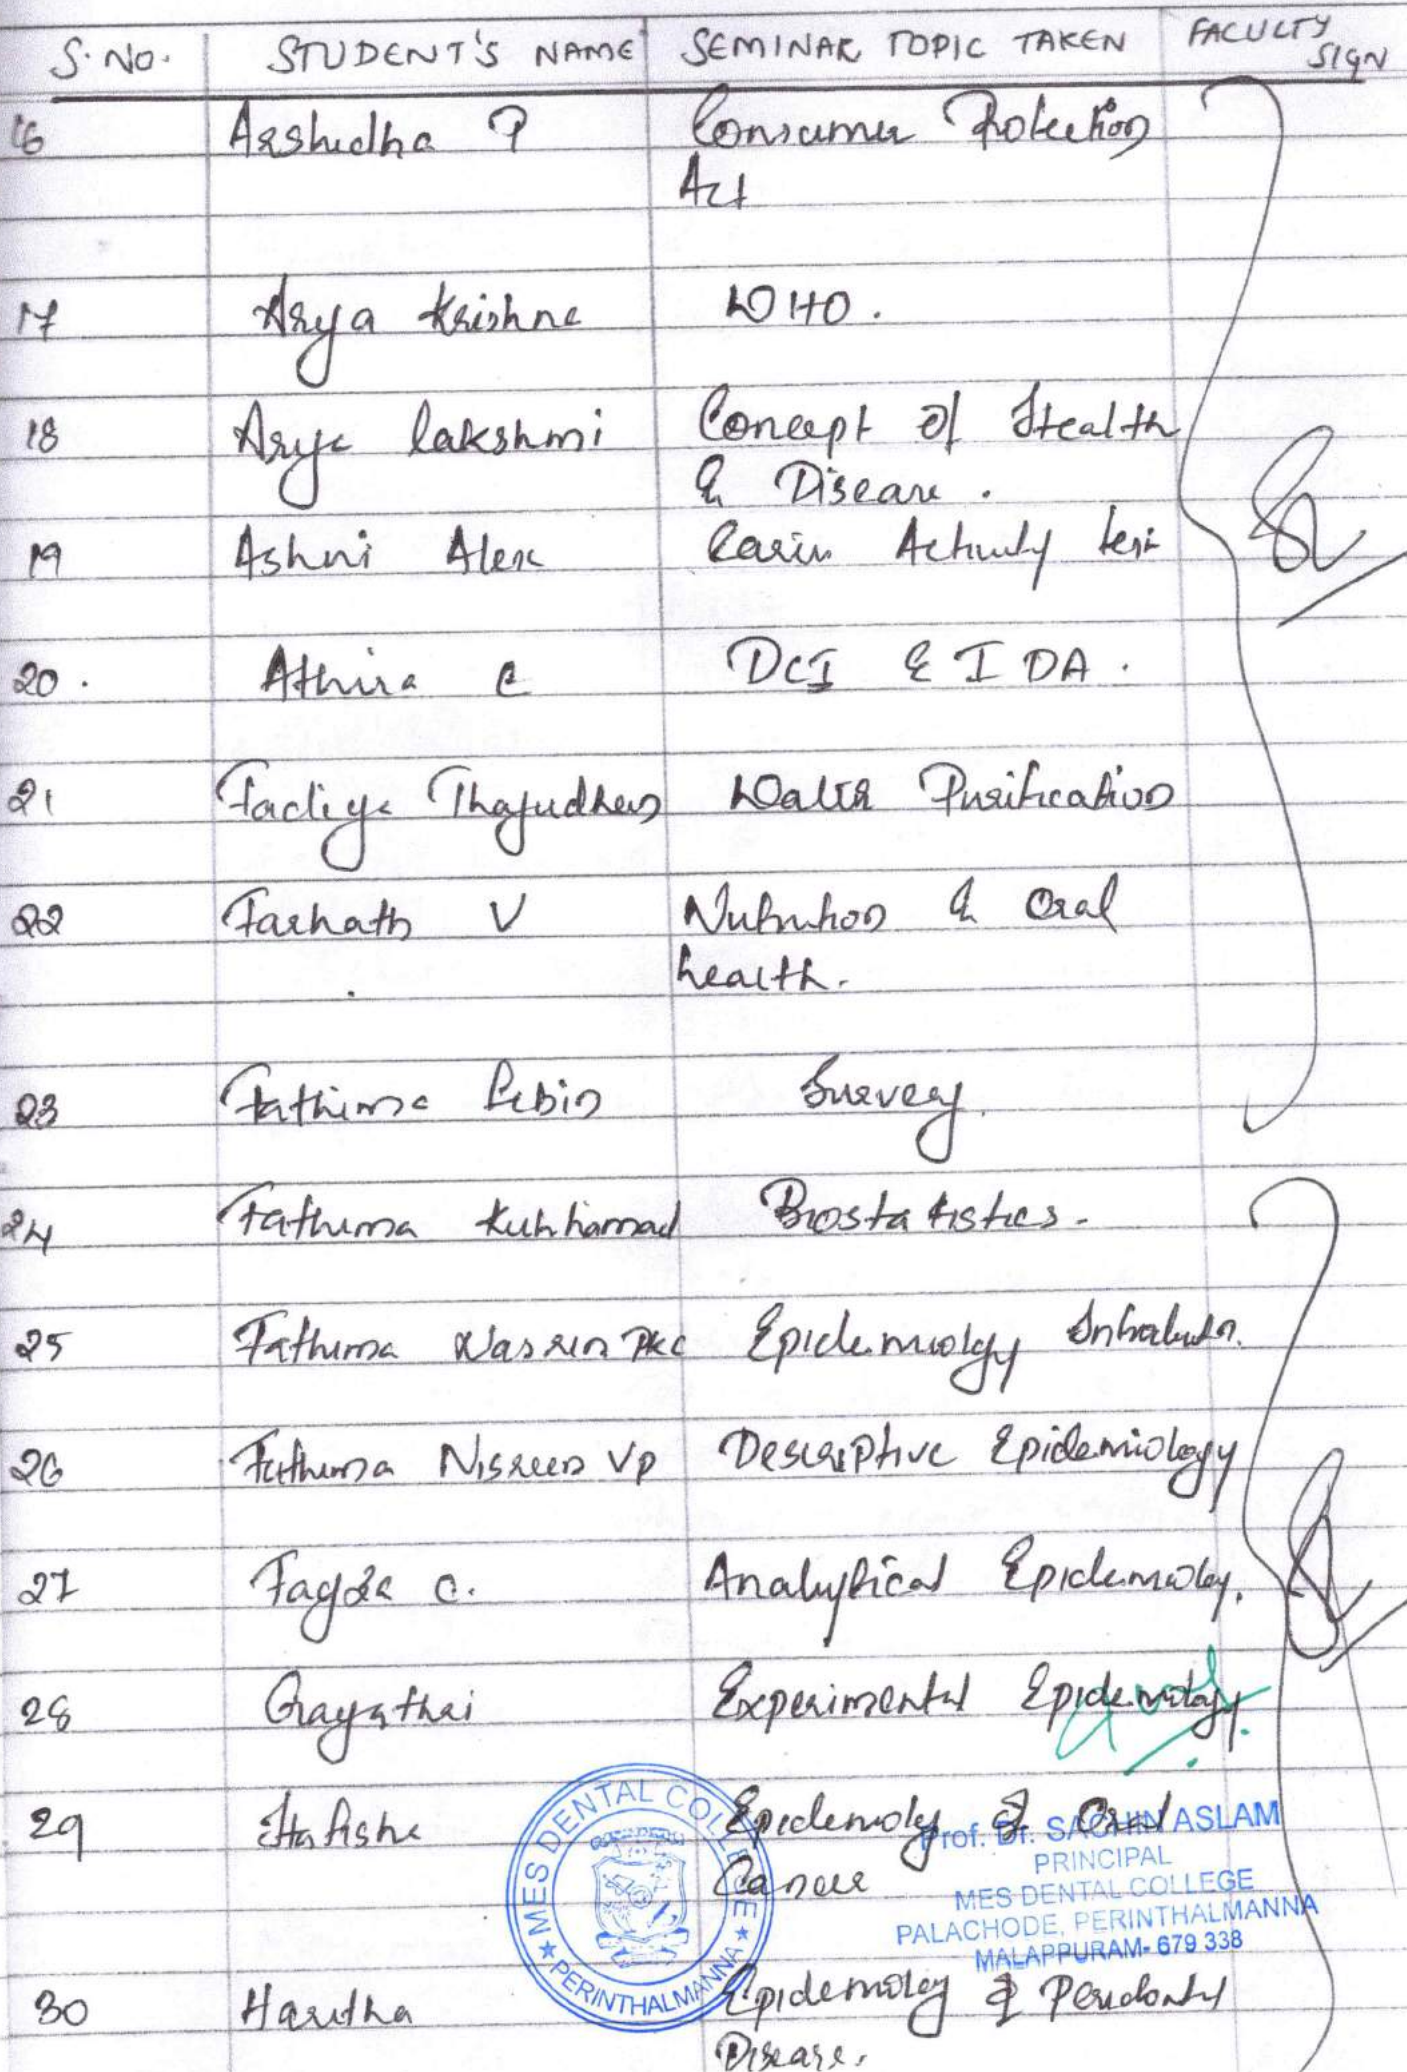 S. No. STUDENT'S NAME SEMINAR TOPIC TAKEN FACULTY SIGN
16 Arshidha P Consumer Protection
Act
17 Arya Krishna WHO.
18 Arya lakshmi Concept of Health
& Disease.
19 Ashni Alex Caries Activity test
20. Athira C DCI & IDA.
21 Fadiya Thajudheen Water Purification
22 Farhath V Nutrition & Oral
health.
23 Fathima Survey.
24 Fathima Kunhamad Biostatistics.
25 Fathima Nasrin PKC Epidemiology
26 Fathima Nisreen VP Descriptive Epidemiology
27 C. Analytical Epidemiology.
28 Gayathri Experimental Epidemiology.
29 Epidemiology of Oral
Cancer
30 Haritha Epidemiology of Periodontal
Disease.
MES DENTAL COLLEGE
PERINTHALMANNA
Prof. Dr. SACHIN ASLAM
PRINCIPAL
MES DENTAL COLLEGE
PALACHODE, PERINTHALMANNA
MALAPPURAM- 679 338